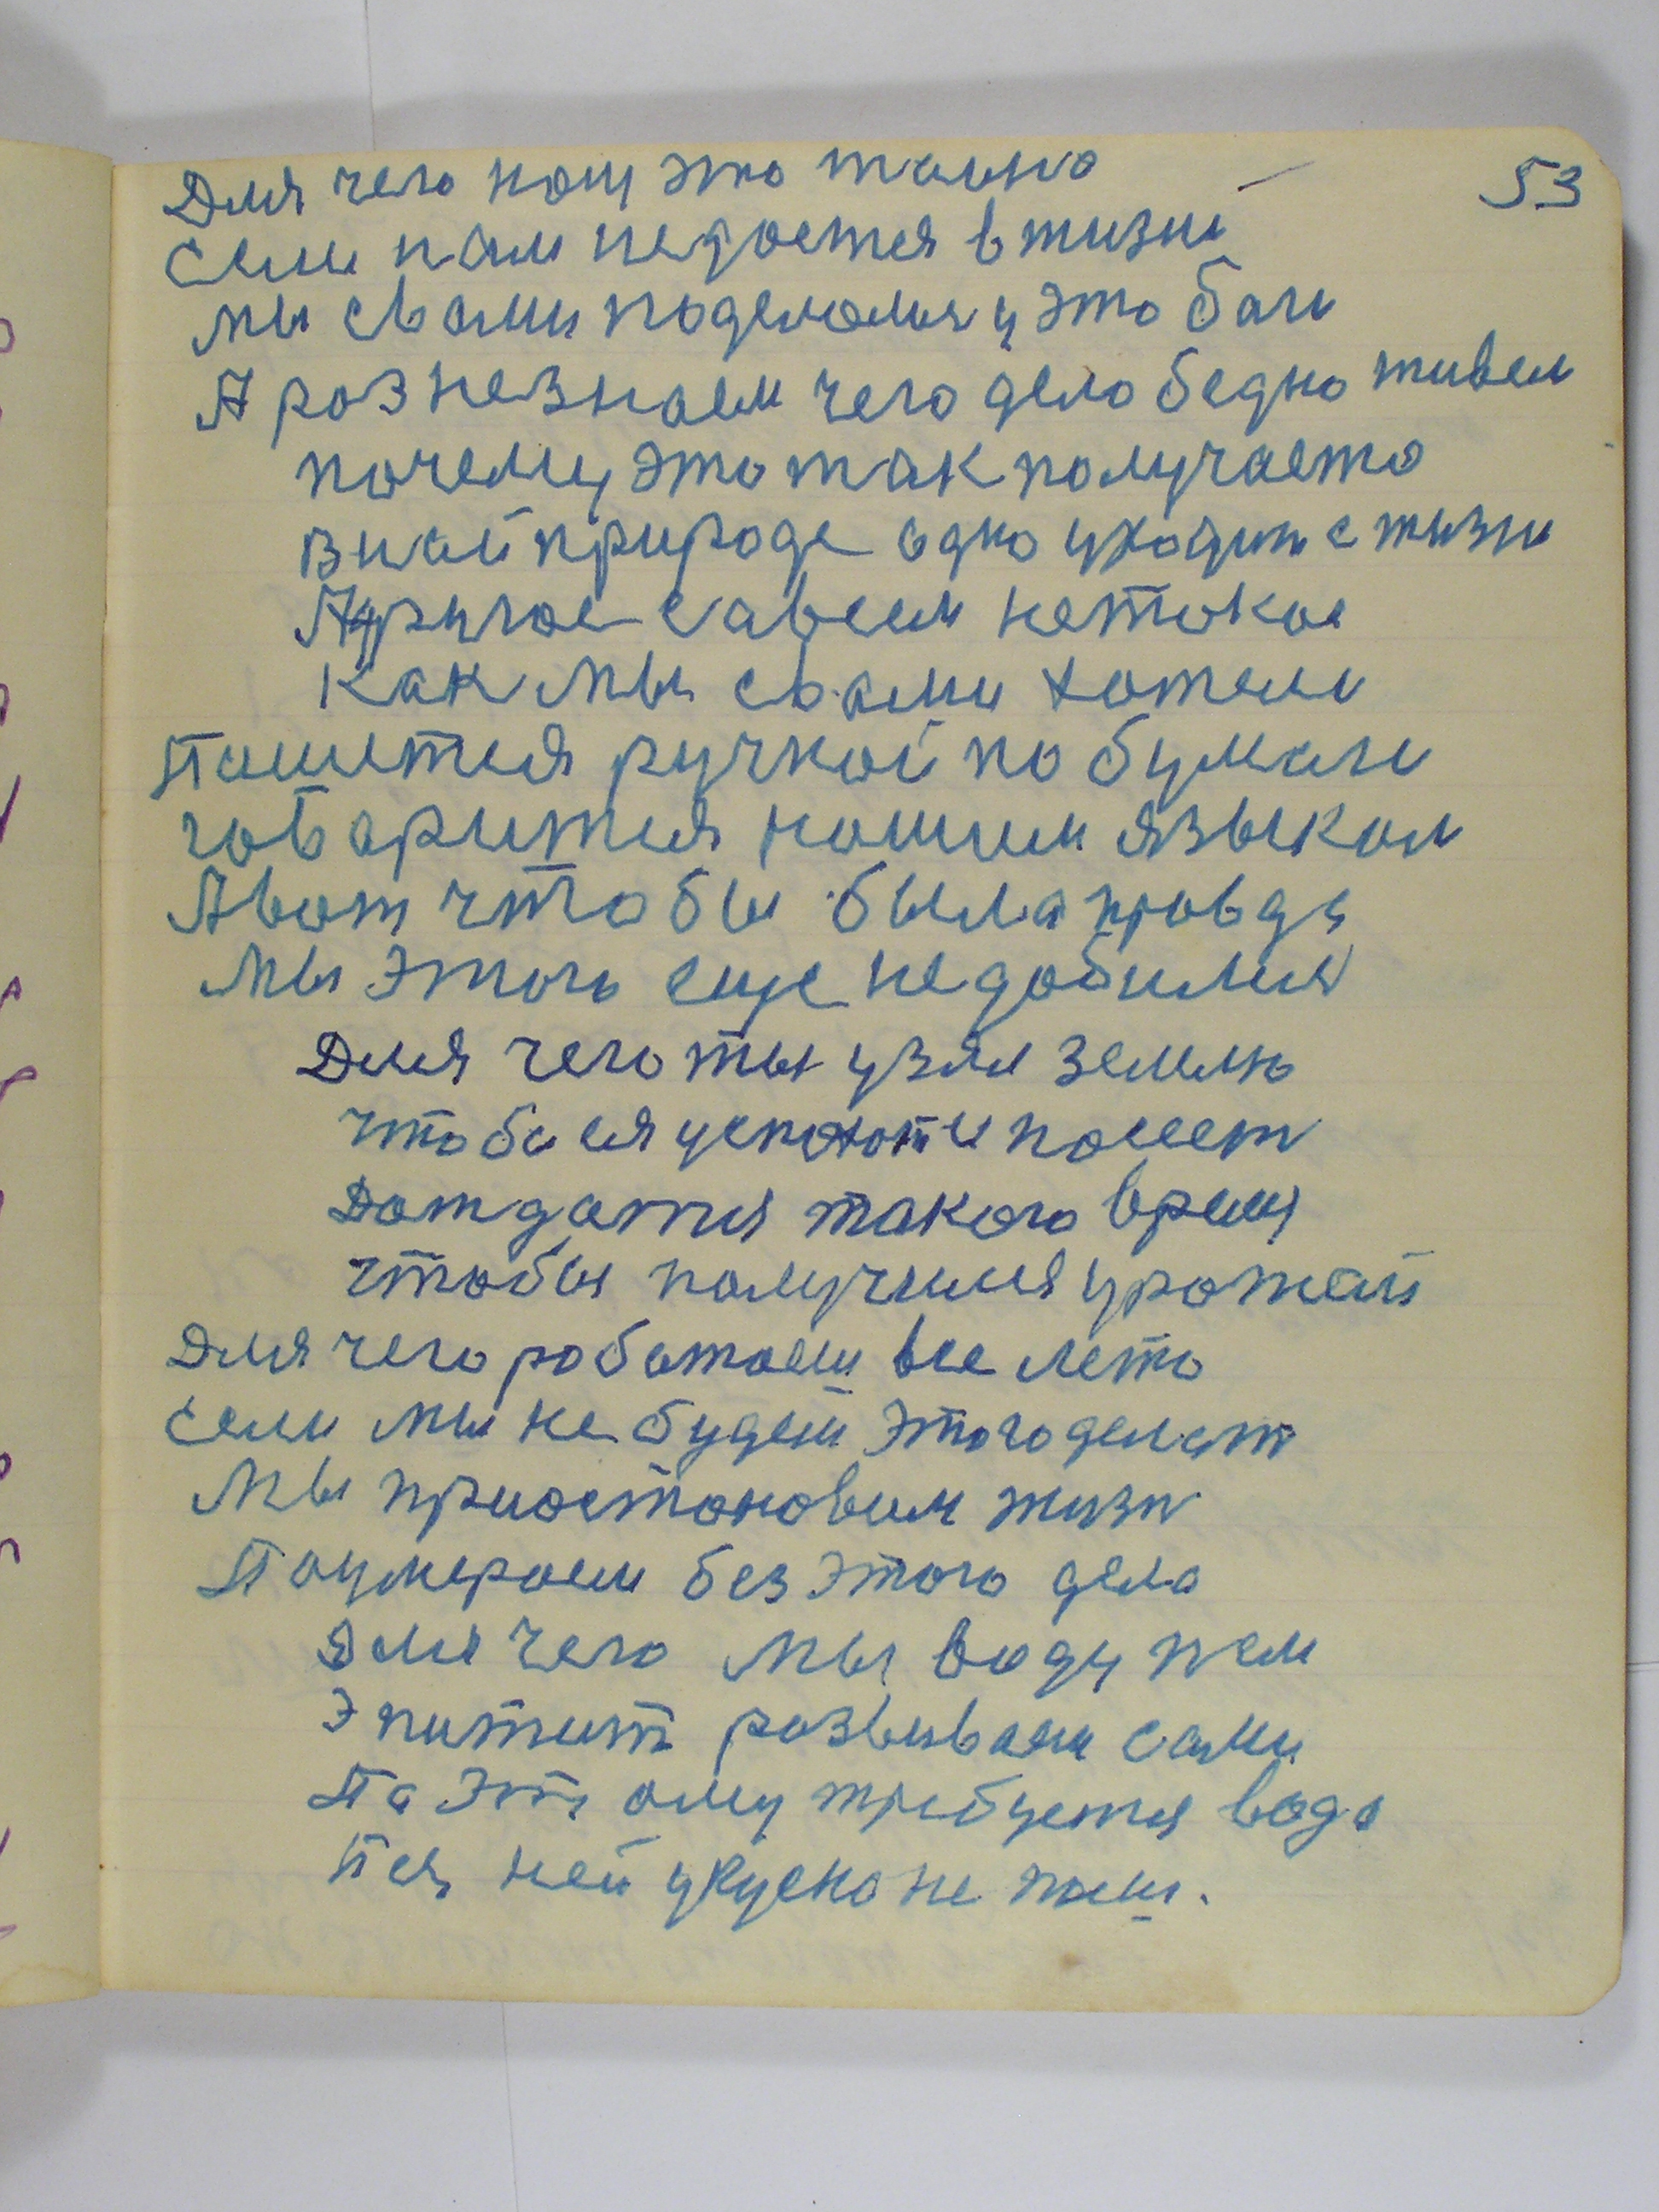 53
Для чего нам это тайна
Если нам недается в жизни
мы с вами поделаемся у это баги
А раз незнаем чего дело бедно живем
почему это так получаето
В ний природе одно уходит с жизни
А другое савсем нетокое
Как мы с вами хотели
Пошется ручкой по бумаги
говарится нашим языком
А вот чтобы была правда
мы этого еще не добилися
Для чего ты узял землю
чтобы ея успохоти посеет
Дождатся такого время
чтобы получился урожай
Для чего работаем все лето
если мы не будем этого делат
Мы приостоновим жизн
Поумераем без этого дела
Для чего мы воду пем
Эпитит розвиваем сами
Па этому требуется вода
Без ней укусно не паеш.